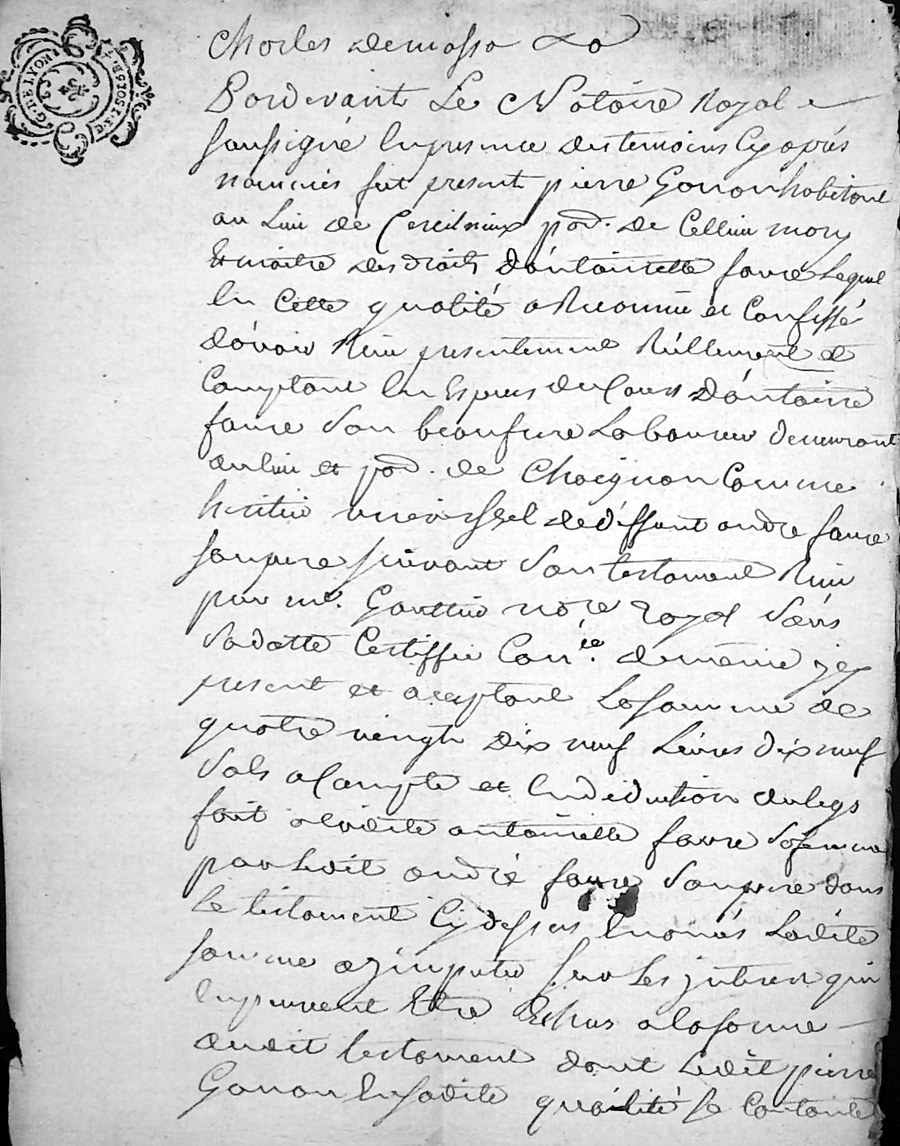 G. DE LYON
Pardevant Le Notoire Royal
soussigné En presence des temoins Cy après
nommés fut present pierre Gonon habitant
au Lieu de par. de Cellieu mary
Et maitre des droits d'antoinette faure Lequel
En Cette qualité a Reconnu et Confessé
d'avoir Reçu presentement Réellement et
Comptant En Especes du Cours d'antoine
faure Son beaufrere Laboureur demeurant
au lieu et par. de Chagnon Comme
heritier universsel de deffunt andré faure
Son pere suivant Son testament Reçu
par me. Gaultier nore Royal Sous
Sa datte Certiffié Con.ie de meme icy
present et aceptant La somme de
quatre vingt dix neuf Livres dix neuf
Sols a Compte et En deduction du legs
fait a ladite antoinette faure Sa femme
par Ledit andré faure Son pere dans
Le testament Cy dessus Enoncés Ladite
somme a jmputer sur Les jnterets qui
En peuvent Etre Echus a la forme
dudit testament dont Ledit pierre
Gonon En sadite qualité Se Contente